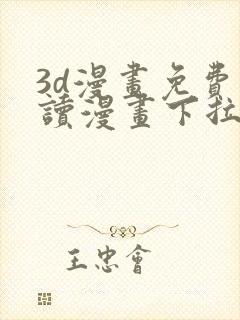 3d漫畫免費
讀漫畫下拉
王忠會